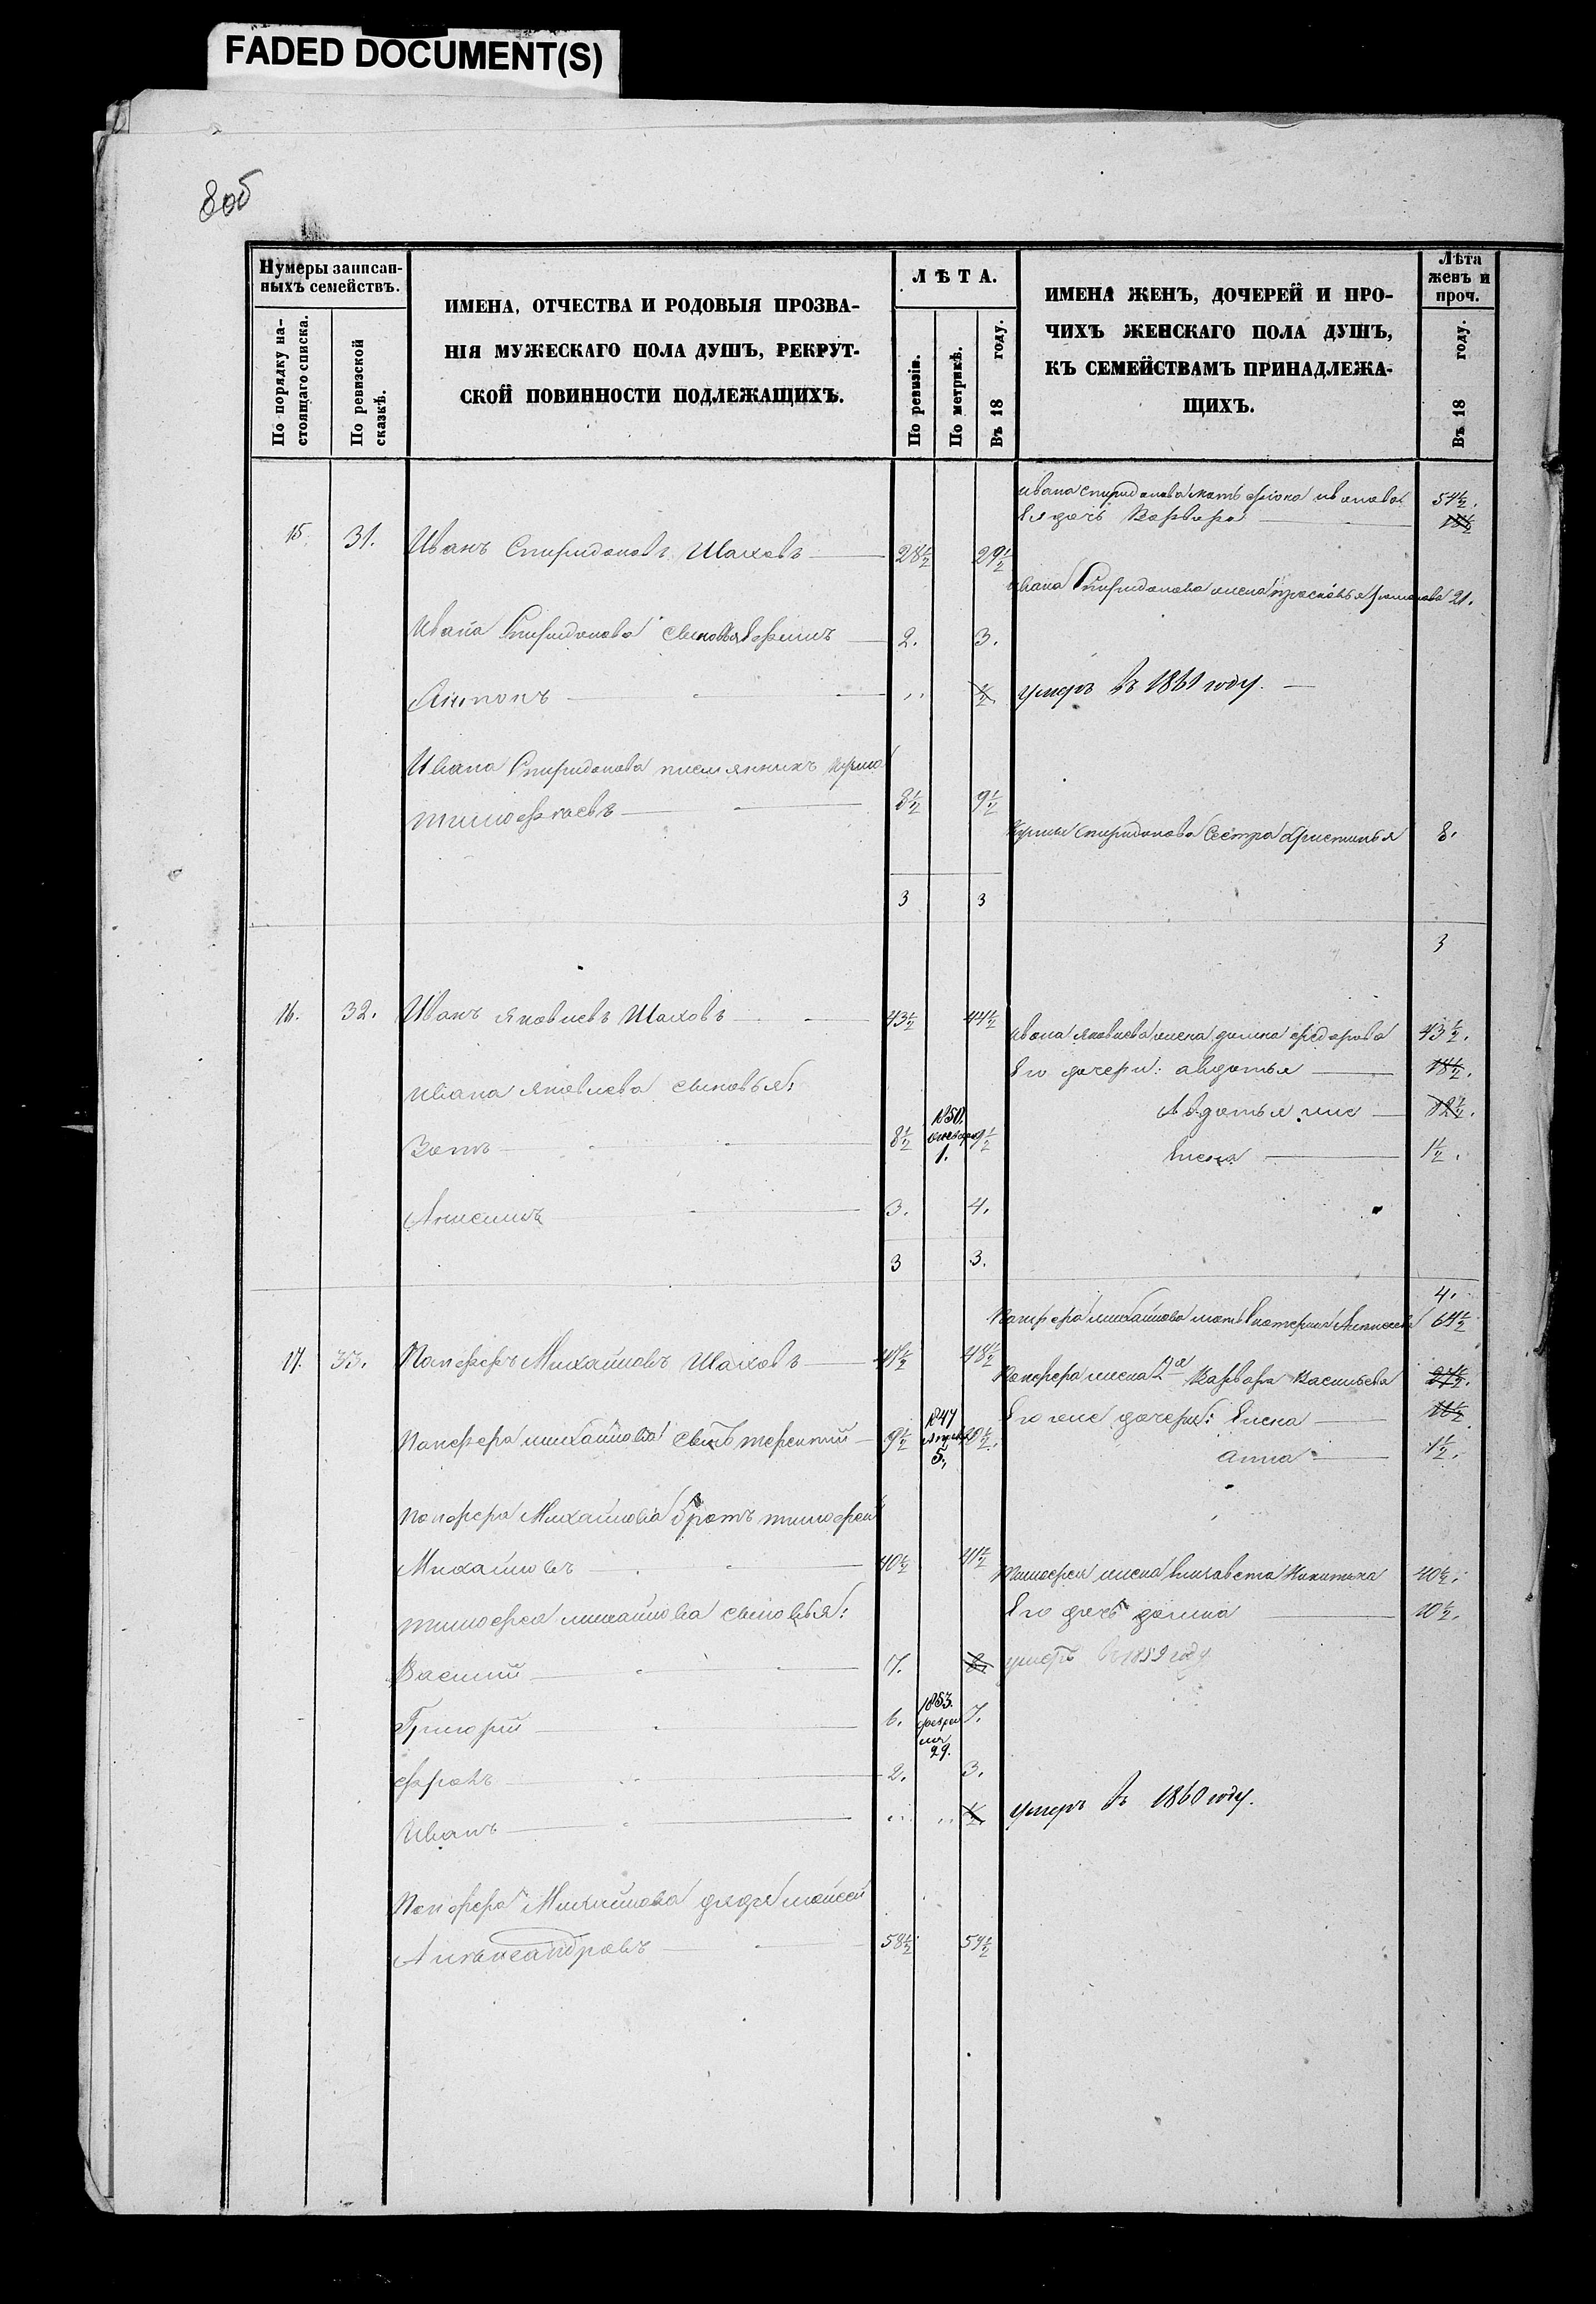 FADED DOCUMENT(S)
8об
Нумеры записан-
ныхъ семействъ.
По порядку на-
стоящаго списка.
По ревизской
сказкѣ.
ИМЕНА, ОТЧЕСТВА И РОДОВЫЯ ПРОЗВА-
НІЯ МУЖЕСКАГО ПОЛА ДУШЪ, РЕКРУТ-
СКОЙ ПОВИННОСТИ ПОДЛЕЖАЩИХЪ.
ЛѢТА.
По ревизіи.
По метрикѣ.
Въ 18 году.
ИМЕНА ЖЕНЪ, ДОЧЕРЕЙ И ПРО-
ЧИХЪ ЖЕНСКАГО ПОЛА ДУШЪ,
КЪ СЕМЕЙСТВАМЪ ПРИНАДЛЕЖА-
ЩИХЪ.
Лѣта
женъ и
проч.
Въ 18 году.
Ивана Спиридонова мать Иванова 54½.
Ея дочь Варвара
15. 31. Иванъ Спиридоновъ Шаховъ 28½ 29½
Ивана Спиридонова жена Прасковья 21.
Ивана Спиридонова сыновья 2. 3.
Антонъ ½ умеръ въ 1861 году.
Ивана Спиридонова племянникъ
Тимофеевъ 8½ 9½
Спиридонова сестра Христинья 8.
3 3
3
16. 32. Иванъ Яковлевъ Шаховъ 43½ 44½
Ивана Яковлева жена Федорова 43½.
Его дочери: Авдотья 18½.
Ивана Яковлева сыновья:
Авдотья же 12½.
8½ 1850. 1. 9½
Елена 1½.
Анисимъ 3. 4.
3 3.
4.
Панфера Михайлова мать Катерина 64½
17. 33. Панферъ Михайловъ Шаховъ 47½ 48½
Панфера жена 2я Варвара Васильева 27½.
Его же дочери: Елена 11½
Панфера Михайлова сынъ Терентий 9½ 1847 5. 10½.
Анна 1½.
Панфера Михайлова братъ Тимофей
Михайловъ 40½ 41½
Тимофея жена Елизавета Никитина 40½.
Его дочь 10½.
Тимофея Михайлова сыновья:
Василий 17. умеръ въ 1859 году
Григорий 6. 1853. февраля 29. 7.
Фролъ 2. 3.
Иванъ ½. умеръ въ 1860 году.
Панфера Михайлова дядя Моисей
Александровъ 58½ 59½